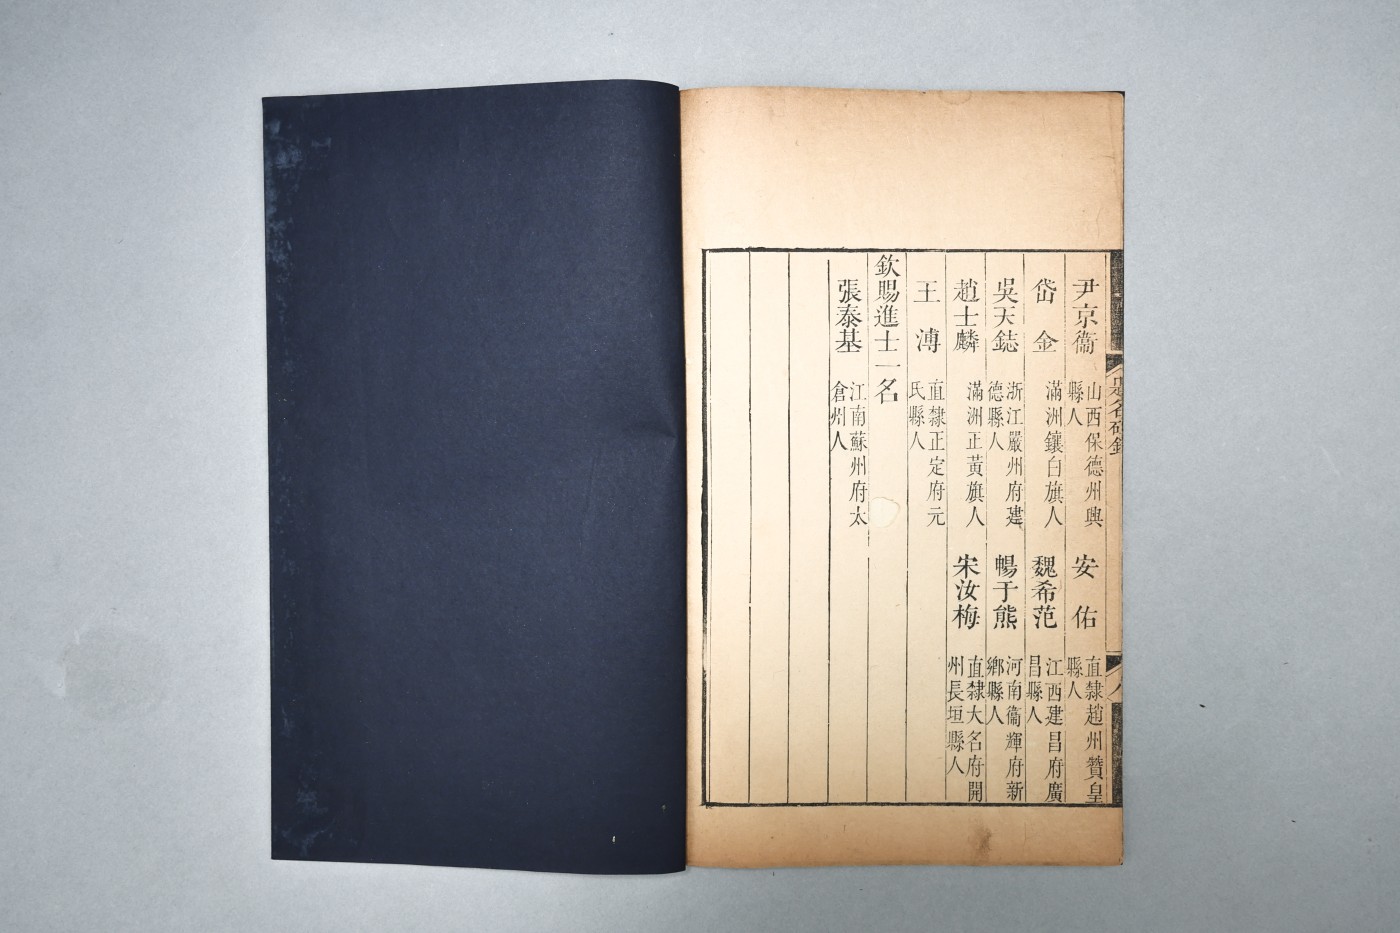 題名碑錄
八
尹京衞 山西保德州興縣人 安佑 直隸趙州贊皇縣人
岱金 滿洲鑲白旗人 魏希范 江西建昌府廣昌縣人
吳天鋕 浙江嚴州府建德縣人 暢于熊 河南衞輝府新鄉縣人
趙士麟 滿洲正黃旗人 宋汝梅 直隸大名府開州長垣縣人
王溥 直隸正定府元氏縣人
欽賜進士一名
張泰基 江南蘇州府太倉州人